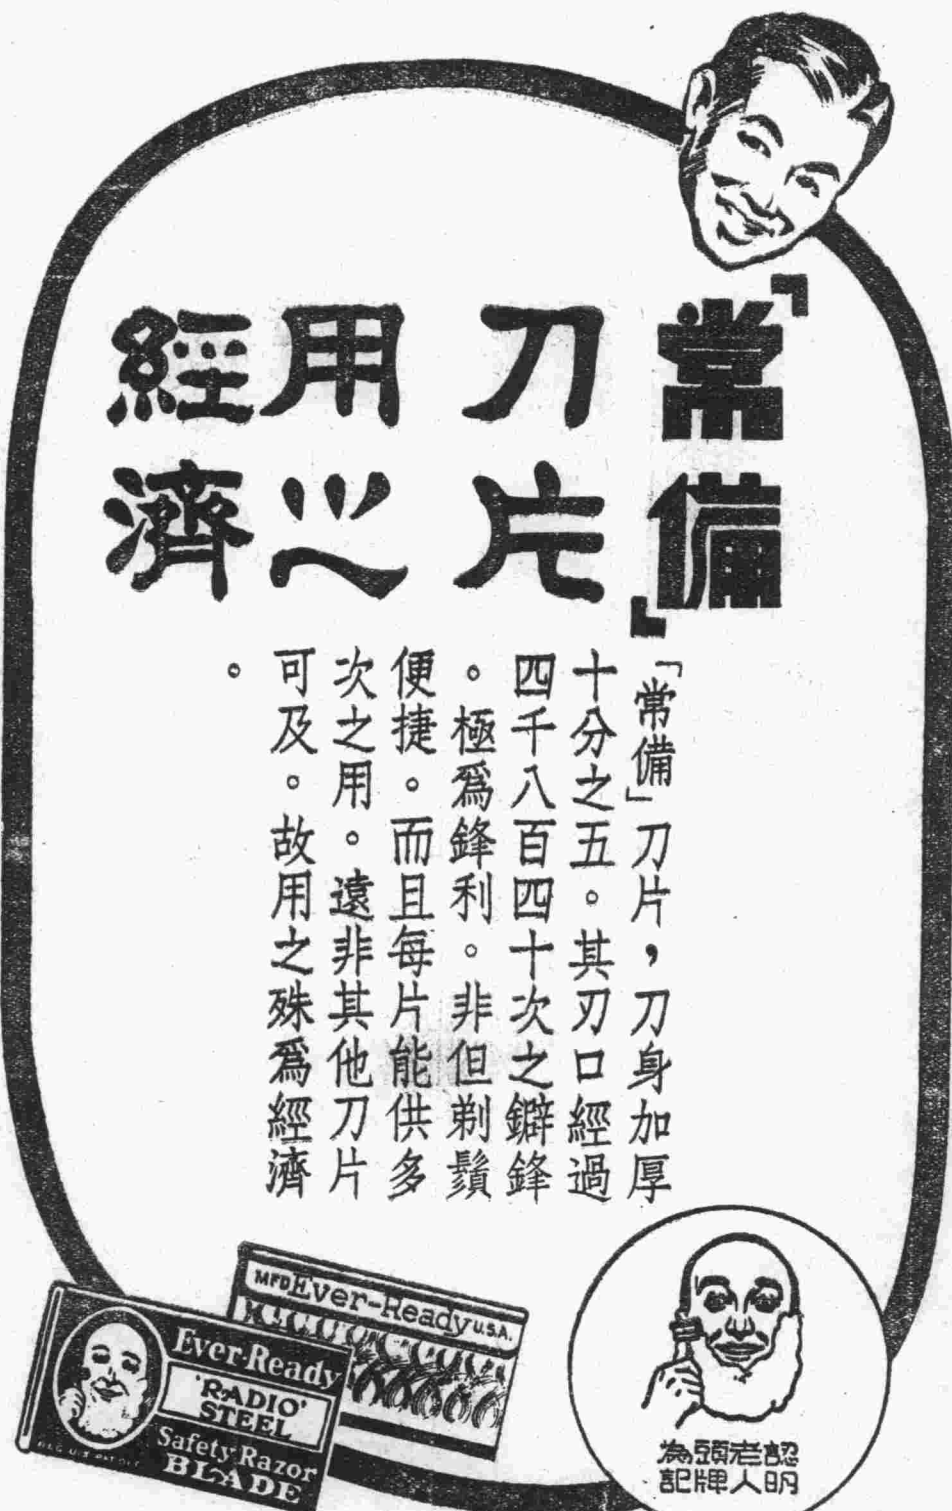 「常備」
刀片
用之
經濟
「常備」刀片，刀身加厚
十分之五。其刃口經過
四千八百四十次之鐴鋒
。極爲鋒利。非但剃鬚
便捷。而且每片能供多
次之用。遠非其他刀片
可及。故用之殊爲經濟
。
MFD Ever-Ready U.S.A.
Ever-Ready
'RADIO'
STEEL
Safety Razor
BLADE
認明
老人
頭牌
為記